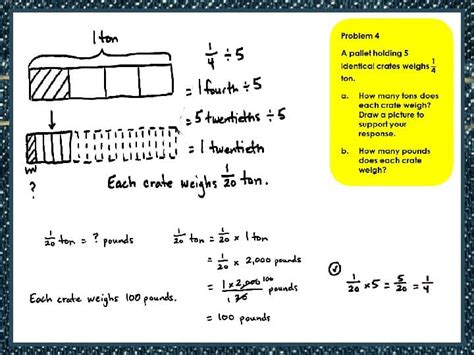 1 ton
1/4 ÷ 5
= 1 fourth ÷ 5
= 5 twentieths ÷ 5
= 1 twentieth
?
Each crate weighs 1/20 ton.
Problem 4
A pallet holding 5
identical crates weighs 1/4
ton.
a. How many tons does
each crate weigh?
Draw a picture to
support your
response.
b. How many pounds
does each crate
weigh?
1/20 ton = ? pounds
1/20 ton = 1/20 × 1 ton
= 1/20 × 2,000 pounds
= 1 × 2,000 100 / 20
= 100 pounds
Each crate weighs 100 pounds.
✓ 1/20 × 5 = 5/20 = 1/4